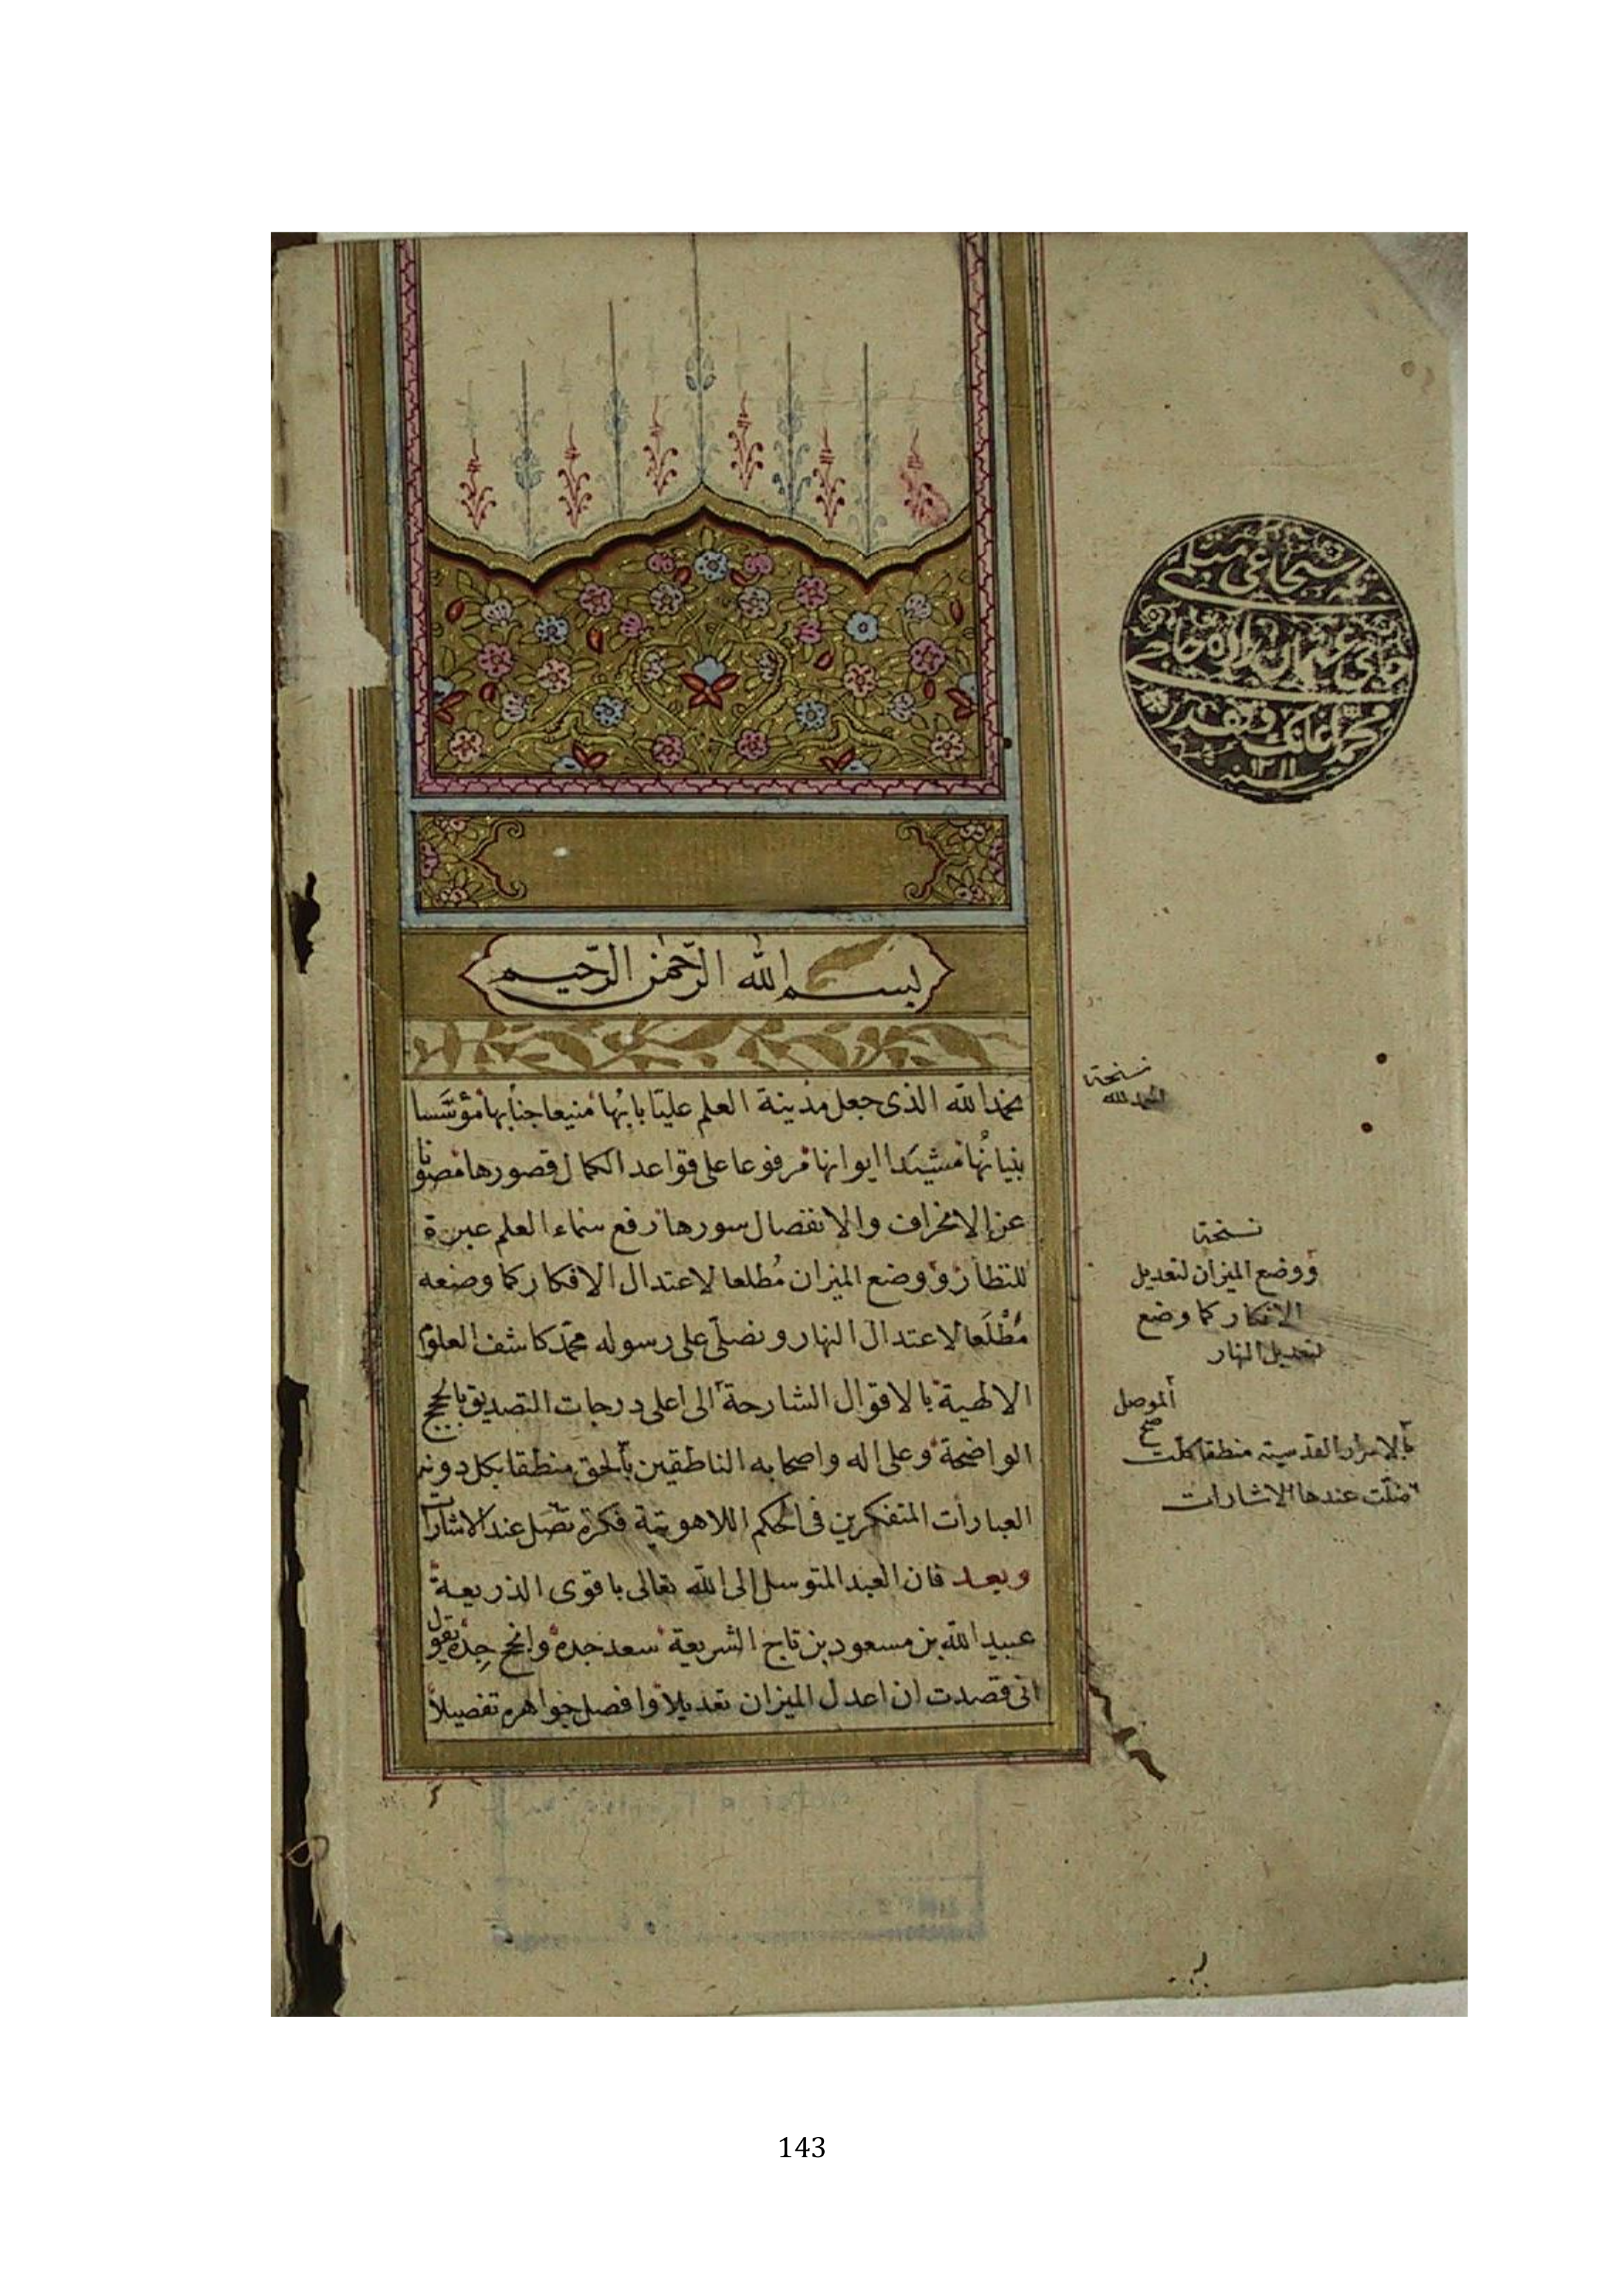 بسم الله الرّحمن الرّحيم
نحمد الله الذى جعل مدينة العلم عليّا بابها منيعا جنابها مؤسّسا
بنيانها مشيّدا ايوانها مرفوعا على قواعد الكمال قصورها مصونا
عن الانخراف والانفصال سورها رفع سماء العلم عبرة
للنظار ووضع الميزان مُطلعا لاعتدال الافكار كما وضعه
مُطْلَعا لاعتدال النهار ونصلّى على رسوله محمّد كاشف العلوم
الالهية بالاقوال الشارحة الى اعلى درجات التصديق بالحجج
الواضحة وعلى اله واصحابه الناطقين بالحق منطقا يكل دونه
العبارات المتفكرين فى الحكم اللاهوتية فكرة تضل عند الاشارات
وبعد فان العبد المتوسل الى الله تعالى باقوى الذريعة
عبيد الله بن مسعود بن تاج الشريعة سعد جده وانجح جِدّه يقول
انى قصدت ان اعدل الميزان تعديلا وافصل جواهره تفصيلا
نسخة
الحمد لله
نسخة
ووضع الميزان لتعديل
الافكار كما وضع
لتعديل النهار
الموصل
صح
بالاسرار القدسية منطقا كلّت
ضلّت عندها الاشارات
محمد
سنة ١٢١١
143